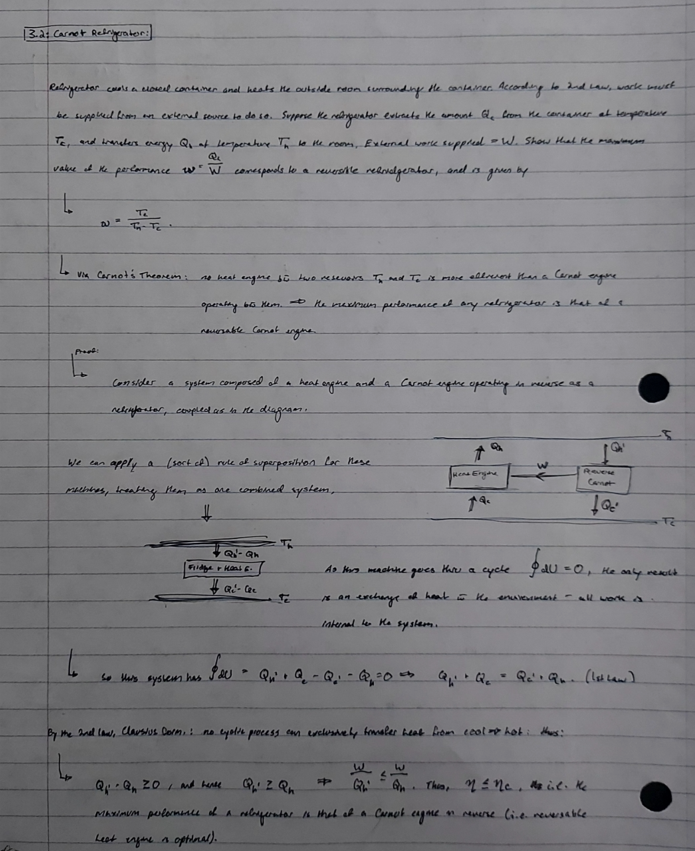 3.2: Carnot Refrigerator:
Refrigerator cools a closed container and heats the outside room surrounding the container. According to 2nd Law, work must
be supplied from an external source to do so. Suppose the refrigerator extracts the amount Q_c from the container at temperature
T_c, and transfers energy Q_h at temperature T_h to the room. External work supplied = W. Show that the maximum
value of the performance w = Q_c/W corresponds to a reversible refrigerator, and is given by
w = T_c/(T_h - T_c).
Via Carnot's Theorem: no heat engine two reservoirs T_h and T_c is more efficient than a Carnot engine
operating them. ⇒ the maximum performance of any refrigerator is that of a
reversable Carnot engine.
Proof:
Consider a system composed of a heat engine and a Carnot engine operating in reverse as a
refrigerator, coupled as in the diagram.
We can apply a (sort of) rule of superposition for these
machines, treating them as one combined system,
⇓
Q_h
Q_h'
Heat Engine
W
Reverse
Carnot
Q_c
Q_c'
T_c
T_h
Q_h' - Q_h
Fridge + Heat E.
Q_c' - Q_c
T_c
As this machine goes thru a cycle ∮dU = 0, the only result
is an exchange of heat the environment - all work is
internal to the system.
So this system has ∮dU = Q_h' + Q_c - Q_c' - Q_h = 0 ⇒ Q_h' + Q_c = Q_c' + Q_h. (1st Law)
By the 2nd law, Clausius Form.: no cyclic process can exclusively transfer heat from cool → hot: thus:
Q_h' - Q_h ≥ 0, and hence Q_h' ≥ Q_h ⇒ W/Q_h' ≤ W/Q_h. Thus, η ≤ η_c, i.e. the
maximum performance of a refrigerator is that of a Carnot engine in reverse (i.e. reversable
heat engine is optimal).